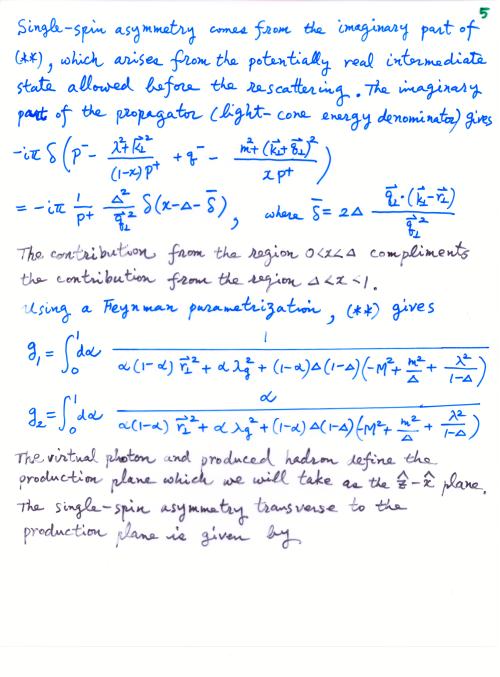 5
Single-spin asymmetry comes from the imaginary part of
(**), which arises from the potentially real intermediate
state allowed before the rescattering. The imaginary
part of the propagator (light-cone energy denominator) gives
-iπ δ(p⁻ - (λ²+k⃗⊥²)/((1-x)p⁺) + q⁻ - (m²+(k⃗⊥+q⃗⊥)²)/(x p⁺))
= -iπ (1/p⁺) (Δ²/q⃗⊥²) δ(x-Δ-δ̄), where δ̄ = 2Δ (q⃗⊥·(k⃗⊥-r⃗⊥))/(q⃗⊥²)
The contribution from the region 0<x<Δ compliments
the contribution from the region Δ<x<1.
Using a Feynman parametrization, (**) gives
g₁ = ∫₀¹ dα 1/(α(1-α) r⃗⊥² + α λg² + (1-α)Δ(1-Δ)(-M² + m²/Δ + λ²/(1-Δ)))
g₂ = ∫₀¹ dα α/(α(1-α) r⃗⊥² + α λg² + (1-α)Δ(1-Δ)(-M² + m²/Δ + λ²/(1-Δ)))
The virtual photon and produced hadron define the
production plane which we will take as the ẑ-x̂ plane.
The single-spin asymmetry transverse to the
production plane is given by